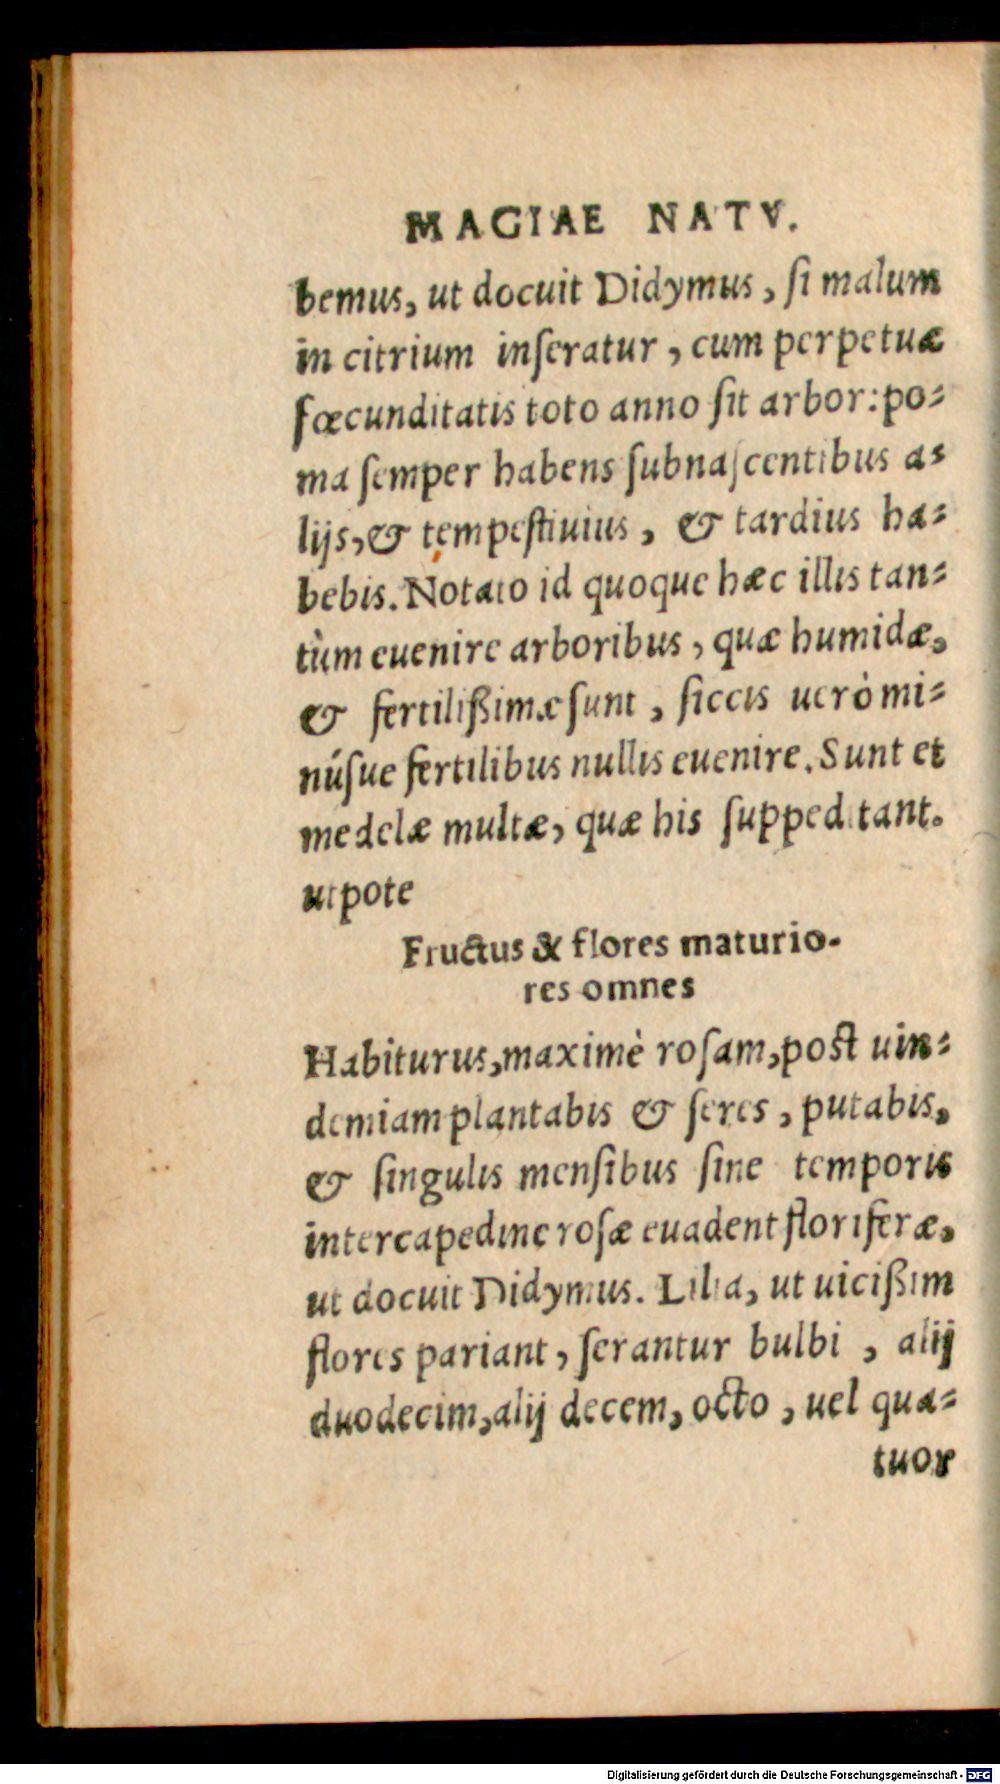 MAGIAE NATV.
bemus, ut docuit Didymus, ſi malum
in citrium inſeratur, cum perpetuæ
fœcunditatis toto anno ſit arbor: po-
ma ſemper habens ſubnaſcentibus a-
lijs, & tempeſtiuius, & tardius ha-
bebis. Notato id quoque hæc illis tan-
tùm euenire arboribus, quæ humidæ,
& fertilißimæ ſunt, ſiccis uerò mi-
núſue fertilibus nullis euenire. Sunt et
medelæ multæ, quæ his ſuppeditant.
utpote
Fructus & flores maturio-
res omnes
Habiturus, maximè roſam, poſt uin-
demiam plantabis & ſeres, putabis,
& ſingulis menſibus ſine temporis
intercapedine roſæ euadent floriferæ,
ut docuit Didymus. Lilia, ut uicißim
flores pariant, ſerantur bulbi, alij
duodecim, alij decem, octo, uel qua-
tuor
Digitalisierung gefördert durch die Deutsche Forschungsgemeinschaft - DFG